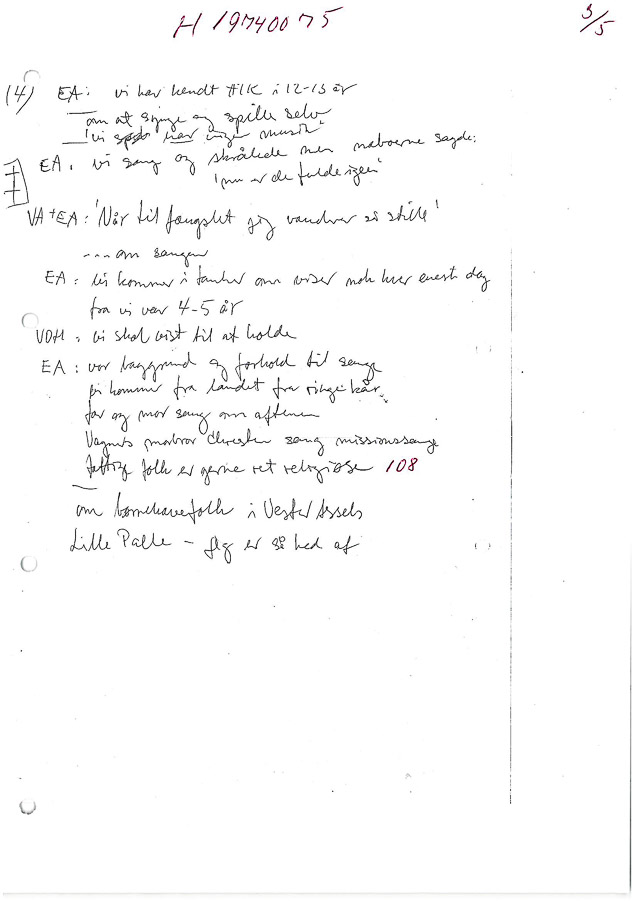 H 19740075
3/5
(4) EA: vi har kendt HK i 12-13 år
om at synge og spille selv
'vi har ingen musik'
EA: vi sang og skrålede men naboerne sagde:
'nu er de fulde igen'
VA+EA: 'Når til fængslet jeg vandrer så stille'
--- om sangen
EA: vi kommer i tanker om viser nok hver enest dag
fra vi var 4-5 år
VDH: vi skal vist til at holde
EA: vor baggrund og forhold til sange
vi kommer fra landet fra ringe kår
far og mor sang om aftenen
Vagners morbror Chresten sang missionssange
fattige folk er gerne ret religiøse 108
om børnehavefolk i Vester Assels
Lille Palle - jeg er så ked af